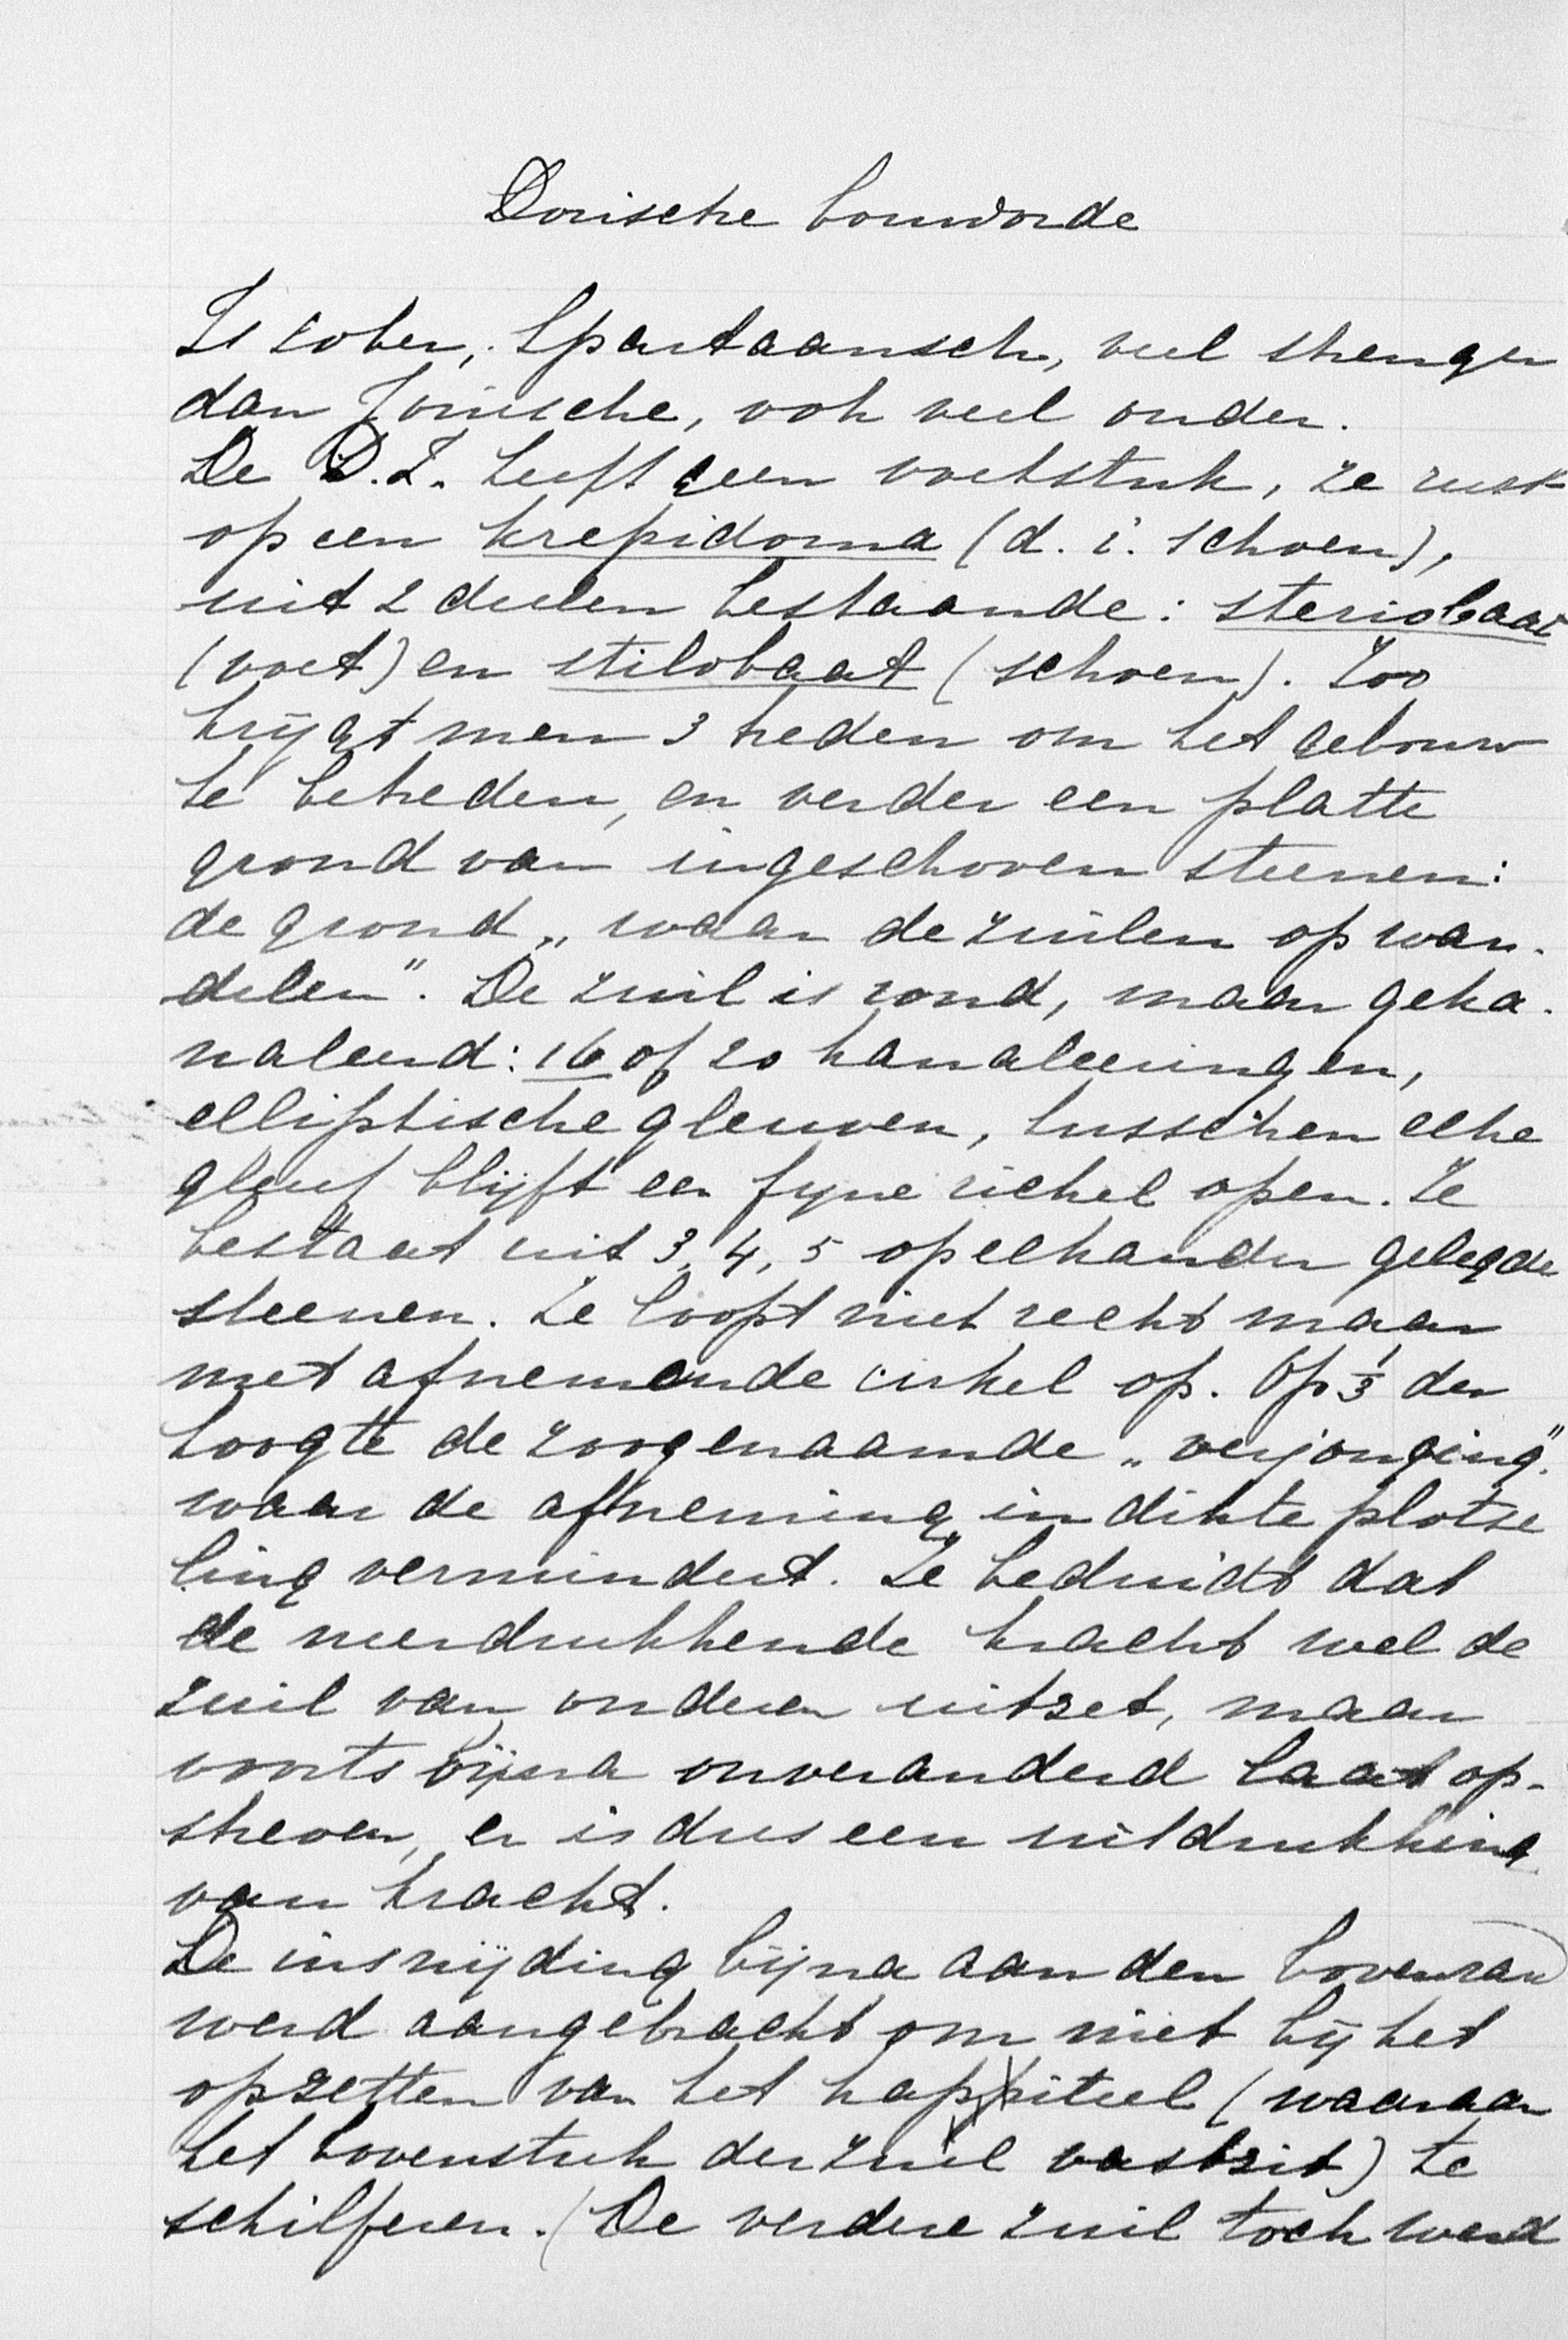 Dorische bouworde
Is sober, Spartaansch, veel strenger
dan Jonische, ook veel ouder.
De D.Z. heeft geen voetstuk, ze rust
op een krepidoma (d. i. schoen),
uit 2 deelen bestaande: steriobaat
(voet) en stilobaat (schoen). Zoo
krijgt men 3 treden om het gebouw
te betreden, en verder een platte
grond van ingeschoven steenen:
de grond „waar de zuilen op wan-
delen". De zuil is rond, maar geka-
naleerd: 16 of 20 kanaleeringen,
elliptische gleuven, tusschen elke
gleuf blijft een fijne richel open. Ze
bestaat uit 3, 4, 5 op elkander gelegde
steenen. Ze loopt niet recht maar
met afnemende cirkel op. Op 1/3 der
hoogte de zoogenaamde „verjonging".
waar de afneming in dikte plotse
ling vermindert. Ze beduidt dat
de neerdrukkende kracht wel de
zuil van onderen uitzet, maar
voorts bijna onveranderd laat op-
streven, er is dus een uitdrukking
van kracht.
De insnijding bijna aan den bovenrand
werd aangebracht om niet bij het
opzetten van het kapiteel (waaraan
het bovenstuk der zuil vastzit) te
schilferen. (De verdere zuil toch werd